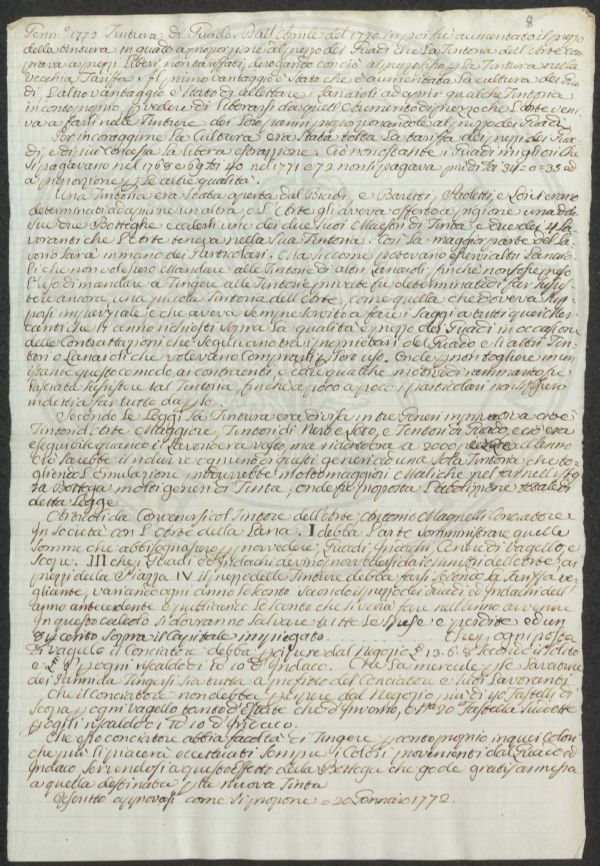 8
Genn.º 1772 Tintura di Guado. Dall'Aprile del 1770 in poi fu aumentato il prezzo
della tintura in guado a proporzione del prezzo dei Guadi che la Tintoria dell'Arte com
prava a prezzi liberi non tariffati, derogando con ciò al prezzo fisso p la Tintura nella
Vecchia Tariffa. Il primo vantaggio è stato che è aumentata la cultura del Gua
di l'altro vantaggio è stato di allettare i Lanaioli ad aprir qualche Tintoria
in conto proprio p vedere di liberarsi da quell'aumento di prezzo che l'arte veni
va a farli nelle Tinture dei loro panni proporzionandole al prezzo dei Guadi
Per incoraggire la Cultura era stata tolta la tariffa dei prezzi dei Gua
di, e di più concessa la libera estrazione. Ciò non ostante i Guadi migliori che
si pagavano nel 1768 e 69 40 nel 1771 e 72 non si pagava più di 34=0=35 ed
a proporzione p le altre qualità.
Una Tintoria era stata aperta dal Biadi, e Baretti, Paoletti e si erano
determinati ad aprirne un altra e l'Arte gli aveva offerto a pigione una del
le due Botteghe e cederli uno dei due suoi Maestri di Tinta e due dei 4 la
voranti che l'Arte teneva nella sua Tintoria. Così la maggior parte del La
voro sarà in mano dei Particolari. Ma siccome potevano esservi altri Lanaio
li che non volessero mandare alle Tintorie di altri Lanaioli, finchè non si fosse preso
l'uso di mandare a Tingere alle Tintorie private fu determinato di far sussis
tere ancora una piccola Tintoria dell'Arte, come quella che doveva sup
porsi imparziale e che aveva sempre servito a fare i saggi a tutti quei mer
canti che li anno richiesti sopra la qualità e prezzo dei Guadi in occasione
delle Contrattazioni che seguivano tra i proprietari del Guado e li altri Tin
tori o Lanaioli che volevano comprarli p loro uso. Onde p non togliere in un
istante questo comodo ai contraenti, e dare qualche
lasciata sussistere tal Tintoria, finchè a poco a poco i particolari non fossero
indotti a far tutto da p se.
Secondo le Leggi la Tintura era divisa in tre Generi in cioè
Tintori d'Arte Maggiore, Tintori di Nero e Loto, e Tintori di Guado, e ciò era
eseguibile quando il lavorio era vasto, ma ridotto ora a 2000 all'anno
ciò sarebbe il ridurre ognuno di questi generi ad una sola Tintoria che to
glierà l'emulazione, introdurrebbe molto maggiori malizie nel
la Bottega molti generi di Tinta, onde fu proposta l'abolizione totale di
detta Legge.
Articoli da Convenirsi col Tintore dell'Arte Antonio Magnelli Conciatore
In società con l'Arte della Lana. I debba l'arte somministrare quelle
somme che abbisognassero p provvedere, Guadi, Indachi Cenere di Vagello, e
Scope. III che i Guadi ed Indachi devino riceversi da Ministri dell'arte ai
prezzi della Piazza IV il prezzo delle Tinture debba farsi secondo la tariffa ve
gliante, variando ogni anno lo sconto secondo il prezzo dei Guadi ed Indachi dell'
anno antecedente e pubblicando lo sconto che si vorrà fare nell'anno avvenire
In questo calcolo si dovranno salvare tutte le spese e perdite ed un
8 p cento sopra il Capitale impiegato Che p ogni posta
di vagello il Conciatore debba p dal Negozio £ 13.6.8 secondo il solito
e £ 8 p ogni riscaldo di 10 d'Indaco. Che la mercede p le lavature
dei panni da Tingersi sia tutta a profitto del Conciatore e suoi Lavoranti
che il conciatore non debba p dal Negozio più di 40 Fastelli di
Scopa p ogni vagello tanto d'Estate che d'Inverno, e 20 Fastella
p ogni riscaldo di 10 d'Indaco.
Che esso conciatore abbia facoltà di Tingere p conto proprio in quei Colori
che più li piacerà eccettuati sempre i Colori provenienti dal Guado ed
Indaco servendosi a quest'effetto della Bottega che gode gratis annessa
a quella destinata p la nuova Tinta
Rescritto approvasi come si propone = 20 Gennaio 1772.